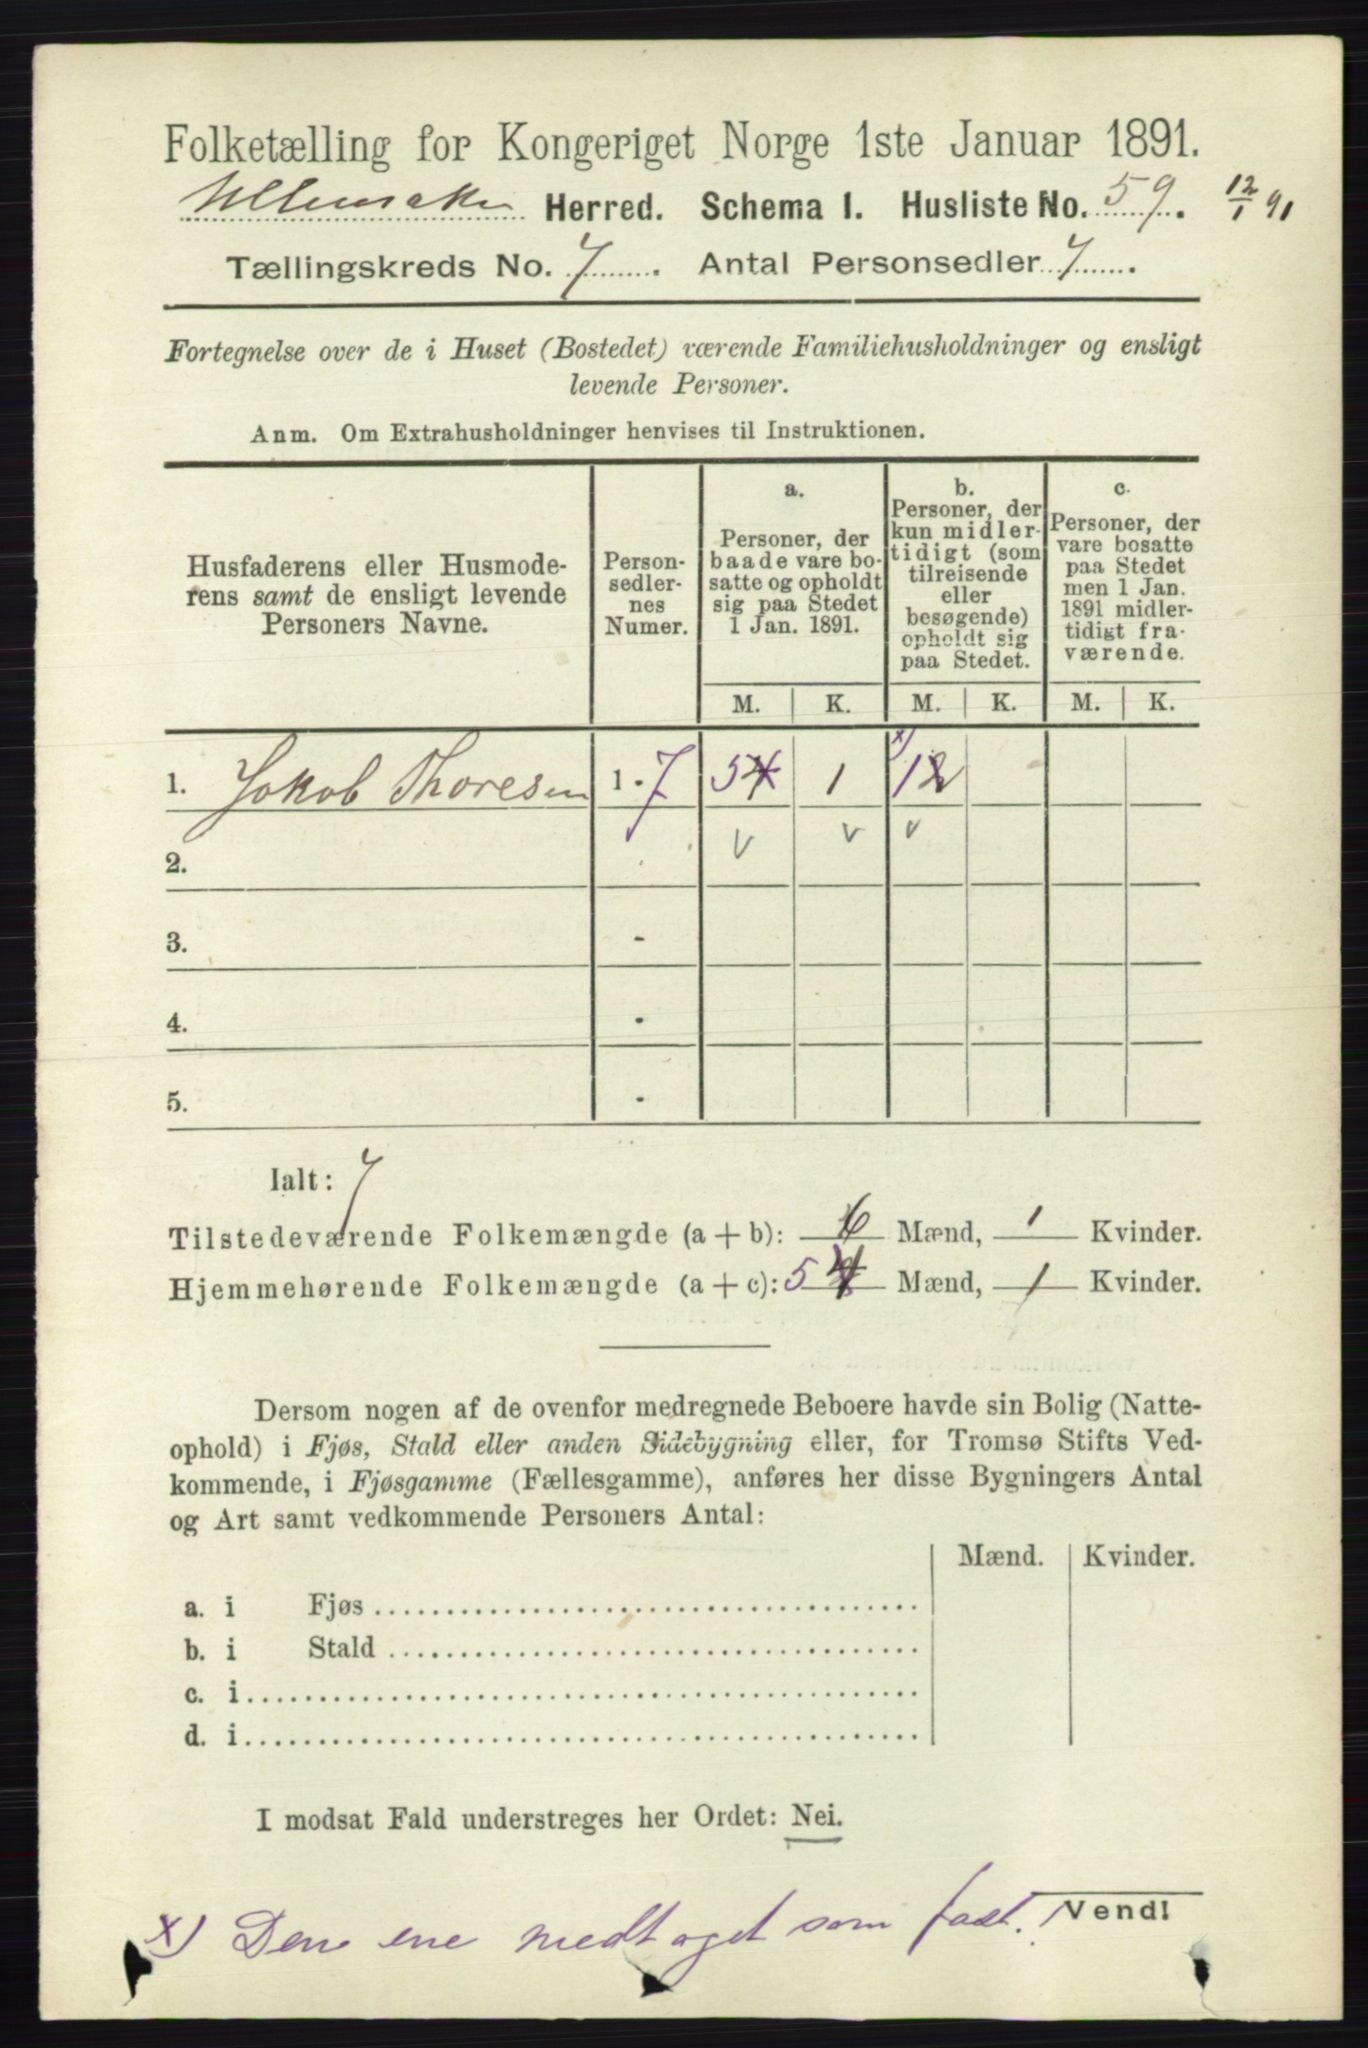 Folketælling for Kongeriget Norge 1ste Januar 1891.
Ullensaker Herred. Schema I. Husliste No. 59. 12/1 91
Tællingskreds No. 7. Antal Personsedler 7.
Fortegnelse over de i Huset (Bostedet) værende Familiehusholdninger og ensligt
levende Personer.
Anm. Om Extrahusholdninger henvises til Instruktionen.
Husfaderens eller Husmode-
rens samt de ensligt levende
Personers Navne.
Person-
sedler-
nes
Numer.
a.
Personer, der
baade vare bo-
satte og opholdt
sig paa Stedet
1 Jan. 1891.
b.
Personer, der
kun midler-
tidigt (som
tilreisende
eller
besøgende)
opholdt sig
paa Stedet.
c.
Personer, der
vare bosatte
paa Stedet
men 1 Jan.
1891 midler-
tidigt fra-
værende.
M. K. M. K. M. K.
1. Jakob Thoresen 1 - 7 5 4 1 x) 1 2
2. v v v
3. -
4. -
5. -
Ialt: 7
Tilstedeværende Folkemængde (a + b): 6 Mænd, 1 Kvinder.
Hjemmehørende Folkemængde (a + c): 5 4 Mænd, 1 Kvinder.
Dersom nogen af de ovenfor medregnede Beboere havde sin Bolig (Natte-
ophold) i Fjøs, Stald eller anden Sidebygning eller, for Tromsø Stifts Ved-
kommende, i Fjøsgamme (Fællesgamme), anføres her disse Bygningers Antal
og Art samt vedkommende Personers Antal:
Mænd. Kvinder.
a. i Fjøs
b. i Stald
c. i
d. i
I modsat Fald understreges her Ordet: Nei.
Vend!
x) Den ene medtaget som fast.